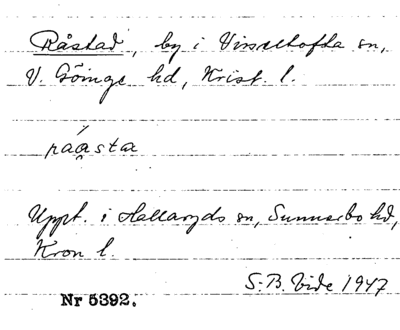 Råstad, by i Vinsltofta sn,
V. Göinge hd, Krist. l.
råasta
Uppt. i Hallaryds sn, Sunnerbo hd,
Kron l.
S. B. Vide 1947
Nr 5392.